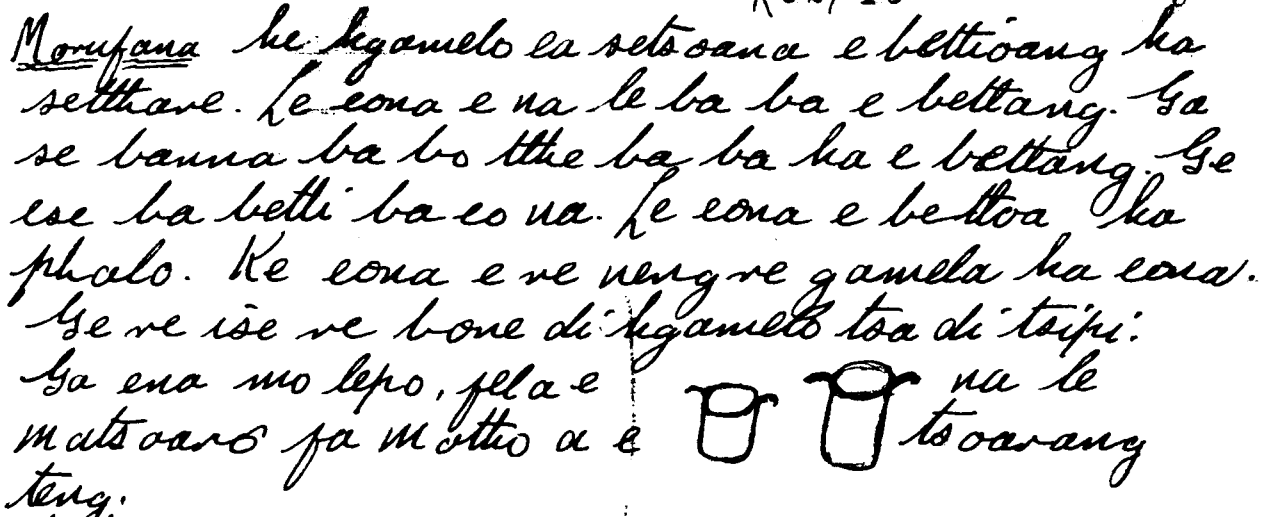 Morufana ke kgamelo ea setsoana e betlioang ka
setlhare. Le eona e na le ba ba e betlang. Ga
se banna ba bo tlhe ba ba ka e betlang. Ge
ese ba betli ba eo na. Le eona e betloa ka
phalo. Ke eona e re neng re gamela ka eona.
Ge re ise re bone di kgamelo tsa di tsipi:
Ga ena mo lepo, fela e na le
matsoaro fa motho a e tsoarang
teng.